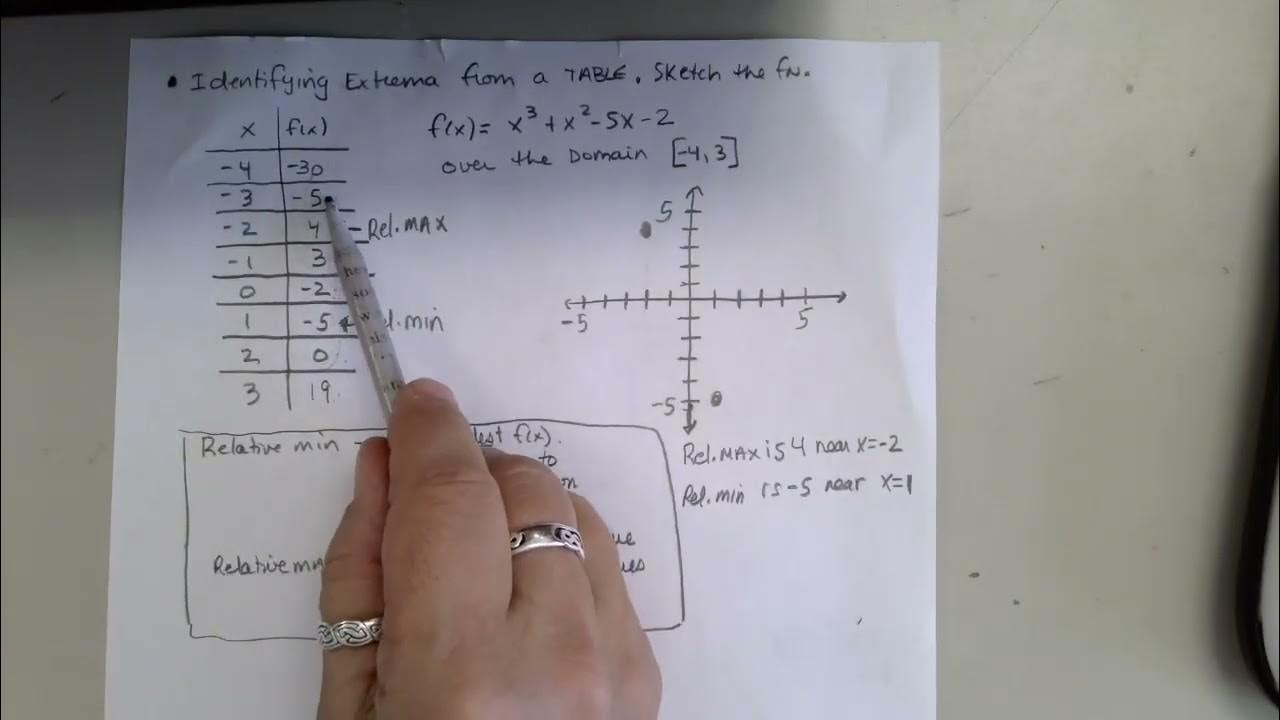 • Identifying Extrema from a TABLE. Sketch the fn.
x f(x)
f(x) = x³ + x² - 5x - 2
over the Domain [-4, 3]
-4 -30
-3 -5
-2 4 - Rel. MAX
-1 3
0 -2
1 -5 min
2 0
3 19
5
-5 5
-5
Relative min - f(x).
to
Rel. MAX is 4 near x=-2
Rel. min is -5 near x=1
Relative